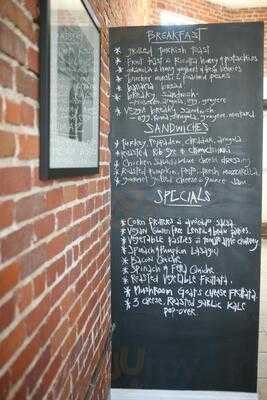 BREAKFAST
* grilled Turkish Toast
* Fruit toast & Ricotta, honey & pistachios
* granola & honey yogurt & fresh berries
* bircher muesli & poached pears
* banana bread
* Breaky Sandwich
egg, gruyere
* Vegan Breaky Sandwich
SANDWICHES
* Turkey, cheddar, arugula
* Roasted Rib eye & Chimichurri
* Chicken Salad & blue cheese dressing
* Roasted Pumpkin, Pesto, fresh mozzarella
* gourmet Grilled cheese & quince Jam
SPECIALS
* Corn Fritters & avocado salsa
* Vegan Gluten free Lentil & bean Patties.
* Vegetable Pasties & Tomato apple chutney
* Spinach Pumpkin Lasagna
* Bacon Quiche
* Spinach & Feta Quiche
* Roasted Vegetable Frittata.
* Mushroom Goats cheese Frittata
* 3 cheese, Roasted garlic Kale
pop-over.